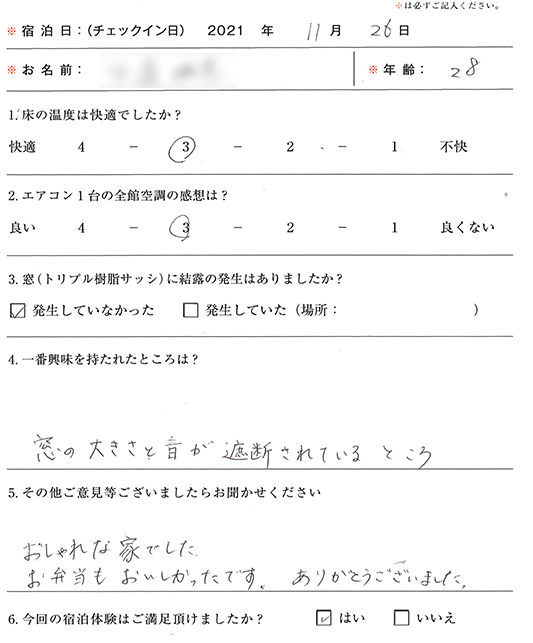 ※は必ずご記入ください。
※宿泊日：（チェックイン日） 2021 年 11 月 26 日
※お名前：
※年齢： 28
1. 床の温度は快適でしたか？
快適 4 － 3 － 2 － 1 不快
2. エアコン1台の全館空調の感想は？
良い 4 － 3 － 2 － 1 良くない
3. 窓（トリプル樹脂サッシ）に結露の発生はありましたか？
☑ 発生していなかった □ 発生していた（場所： ）
4. 一番興味を持たれたところは？
窓の大きさと音が遮断されているところ
5. その他ご意見等ございましたらお聞かせください
おしゃれな家でした.
お弁当もおいしかったです。 ありがとうございました.
6. 今回の宿泊体験はご満足頂けましたか？ ☑ はい □ いいえ